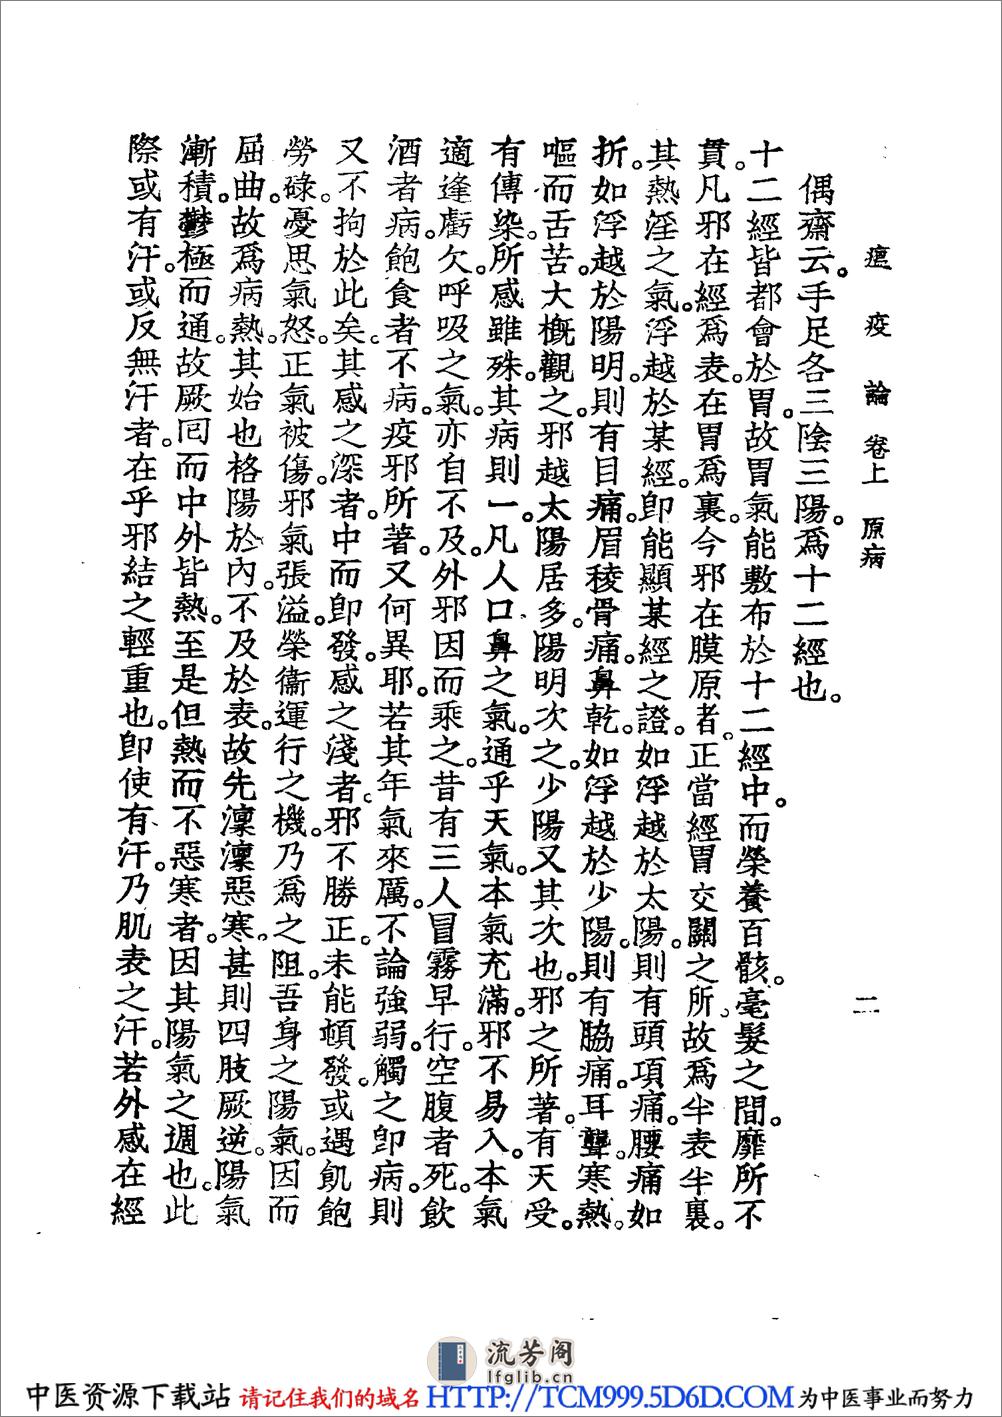 瘟疫論 卷上 原病 二
偶齋云。手足各三陰三陽。爲十二經也。
十二經皆都會於胃。故胃氣能敷布於十二經中。而榮養百骸。毫髮之間。靡所不
貫。凡邪在經爲表。在胃爲裏。今邪在膜原者。正當經胃交關之所。故爲半表半裏。
其熱淫之氣。浮越於某經。即能顯某經之證。如浮越於太陽。則有頭項痛。腰痛如
折。如浮越於陽明。則有目痛。眉稜骨痛。鼻乾。如浮越於少陽。則有脇痛。耳聾。寒熱。
嘔而舌苦。大概觀之。邪越太陽居多。陽明次之。少陽又其次也。邪之所著。有天受。
有傳染。所感雖殊。其病則一。凡人口鼻之氣。通乎天氣。本氣充滿。邪不易入。本氣
適逢虧欠。呼吸之氣。亦自不及。外邪因而乘之。昔有三人。冒霧早行。空腹者死。飲
酒者病。飽食者不病。疫邪所著。又何異耶。若其年氣來厲。不論強弱。觸之即病。則
又不拘於此矣。其感之深者。中而即發。感之淺者。邪不勝正。未能頓發。或遇飢飽
勞碌。憂思氣怒。正氣被傷。邪氣張溢。榮衞運行之機。乃爲之阻。吾身之陽氣。因而
屈曲。故爲病熱。其始也。格陽於內。不及於表。故先凜凜惡寒。甚則四肢厥逆。陽氣
漸積。鬱極而通。故厥囘而中外皆熱。至是但熱而不惡寒者。因其陽氣之週也。此
際或有汗。或反無汗者。在乎邪結之輕重也。即使有汗。乃肌表之汗。若外感在經
流芳阁
lfglib.cn
中医资源下载站 请记住我们的域名 HTTP://TCM999.5D6D.COM 为中医事业而努力